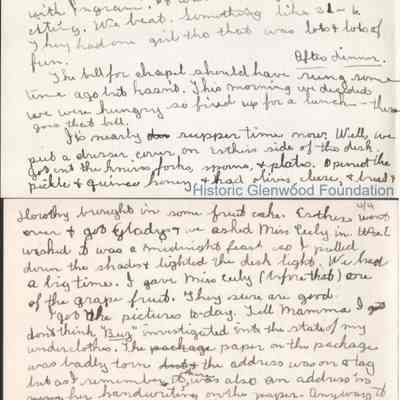 with Ingram.
esting. We beat. Something like 21-6
They had one girl tho that was lots & lots of
fun.
After dinner.
The bill for chapel should have rung some
time ago but hasnt. This morning we decided
we were hungry so fixed up for a lunch - there
goes that bill.
It's nearly supper time now. Well, we
put a dresser cover on Esthers side of the desk.
Got out the knives, forks, spoons, & plates. Opened the
pickle & quince honey, & had olives, cheese, & bread &
Historic Glenwood Foundation
Dorothy brought in some fruit cake. Esther went
over & got Gladys & we asked Miss Culy in. We all
wished it was a midnight feast so I pulled
down the shades & lighted the desk light. We had
a big time. I gave Miss Culy (before that) one
of the grape fruit. They sure are good.
I got the pictures to-day. Tell Mamma I
don't think "Bug" investigated into the state of my
underclothes. The package paper on the package
was badly torn the address was on a tag
but as I remember, there was also an address in
her handwriting on the paper. Anyway it